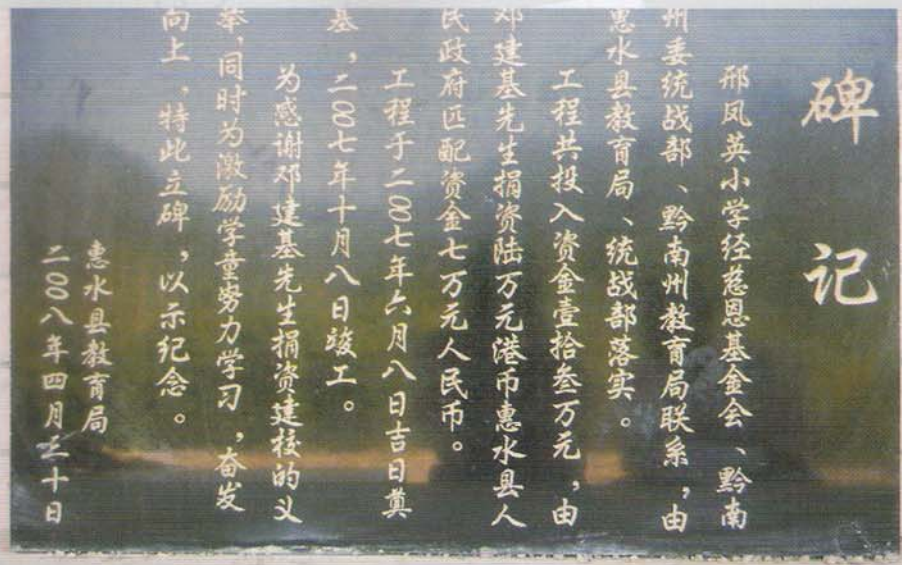 碑记
邢凤英小学经慈恩基金会、黔南
州委统战部、黔南州教育局联系，由
惠水县教育局、统战部落实。
工程共投入资金壹拾叁万元，由
邓建基先生捐资陆万元港币惠水县人
民政府匹配资金七万元人民币。
工程于二00七年六月八日吉日奠
基，二00七年十月八日竣工。
为感谢邓建基先生捐资建校的义
举，同时为激励学童努力学习，奋发
向上，特此立碑，以示纪念。
惠水县教育局
二00八年四月二十日